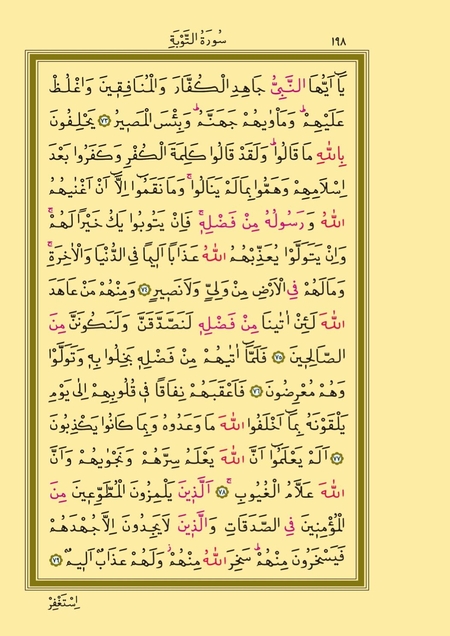 سُورَةُ التَّوْبَةِ ١٩٨
يَٓا اَيُّهَا النَّبِيُّ جَاهِدِ الْكُفَّارَ وَالْمُنَافِقِينَ وَاغْلُظْ
عَلَيْهِمْۜ وَمَأْوٰيهُمْ جَهَنَّمُۜ وَبِئْسَ الْمَصِيرُ ﴿٧٣﴾ يَحْلِفُونَ
بِاللّٰهِ مَا قَالُواۜ وَلَقَدْ قَالُوا كَلِمَةَ الْكُفْرِ وَكَفَرُوا بَعْدَ
اِسْلَامِهِمْ وَهَمُّوا بِمَا لَمْ يَنَالُواۚ وَمَا نَقَمُٓوا اِلَّٓا اَنْ اَغْنٰيهُمُ
اللّٰهُ وَرَسُولُهُ مِنْ فَضْلِهٖۚ فَاِنْ يَتُوبُوا يَكُ خَيْرًا لَهُمْۚ
وَاِنْ يَتَوَلَّوْا يُعَذِّبْهُمُ اللّٰهُ عَذَابًا اَلِيمًا فِي الدُّنْيَا وَالْاٰخِرَةِۚ
وَمَا لَهُمْ فِي الْاَرْضِ مِنْ وَلِيٍّ وَلَا نَصِيرٍ ﴿٧٤﴾ وَمِنْهُمْ مَنْ عَاهَدَ
اللّٰهَ لَئِنْ اٰتٰينَا مِنْ فَضْلِهٖ لَنَصَّدَّقَنَّ وَلَنَكُونَنَّ مِنَ
الصَّالِحِينَ ﴿٧٥﴾ فَلَمَّٓا اٰتٰيهُمْ مِنْ فَضْلِهٖ بَخِلُوا بِهٖ وَتَوَلَّوْا
وَهُمْ مُعْرِضُونَ ﴿٧٦﴾ فَاَعْقَبَهُمْ نِفَاقًا فٖي قُلُوبِهِمْ اِلٰى يَوْمِ
يَلْقَوْنَهُ بِمَٓا اَخْلَفُوا اللّٰهَ مَا وَعَدُوهُ وَبِمَا كَانُوا يَكْذِبُونَ
﴿٧٧﴾ اَلَمْ يَعْلَمُٓوا اَنَّ اللّٰهَ يَعْلَمُ سِرَّهُمْ وَنَجْوٰيهُمْ وَاَنَّ
اللّٰهَ عَلَّامُ الْغُيُوبِۚ ﴿٧٨﴾ اَلَّذِينَ يَلْمِزُونَ الْمُطَّوِّعِينَ مِنَ
الْمُؤْمِنِينَ فِي الصَّدَقَاتِ وَالَّذِينَ لَا يَجِدُونَ اِلَّا جُهْدَهُمْ
فَيَسْخَرُونَ مِنْهُمْۜ سَخِرَ اللّٰهُ مِنْهُمْۘ وَلَهُمْ عَذَابٌ اَلِيمٌ ﴿٧٩﴾
اِسْتَغْفِرْ